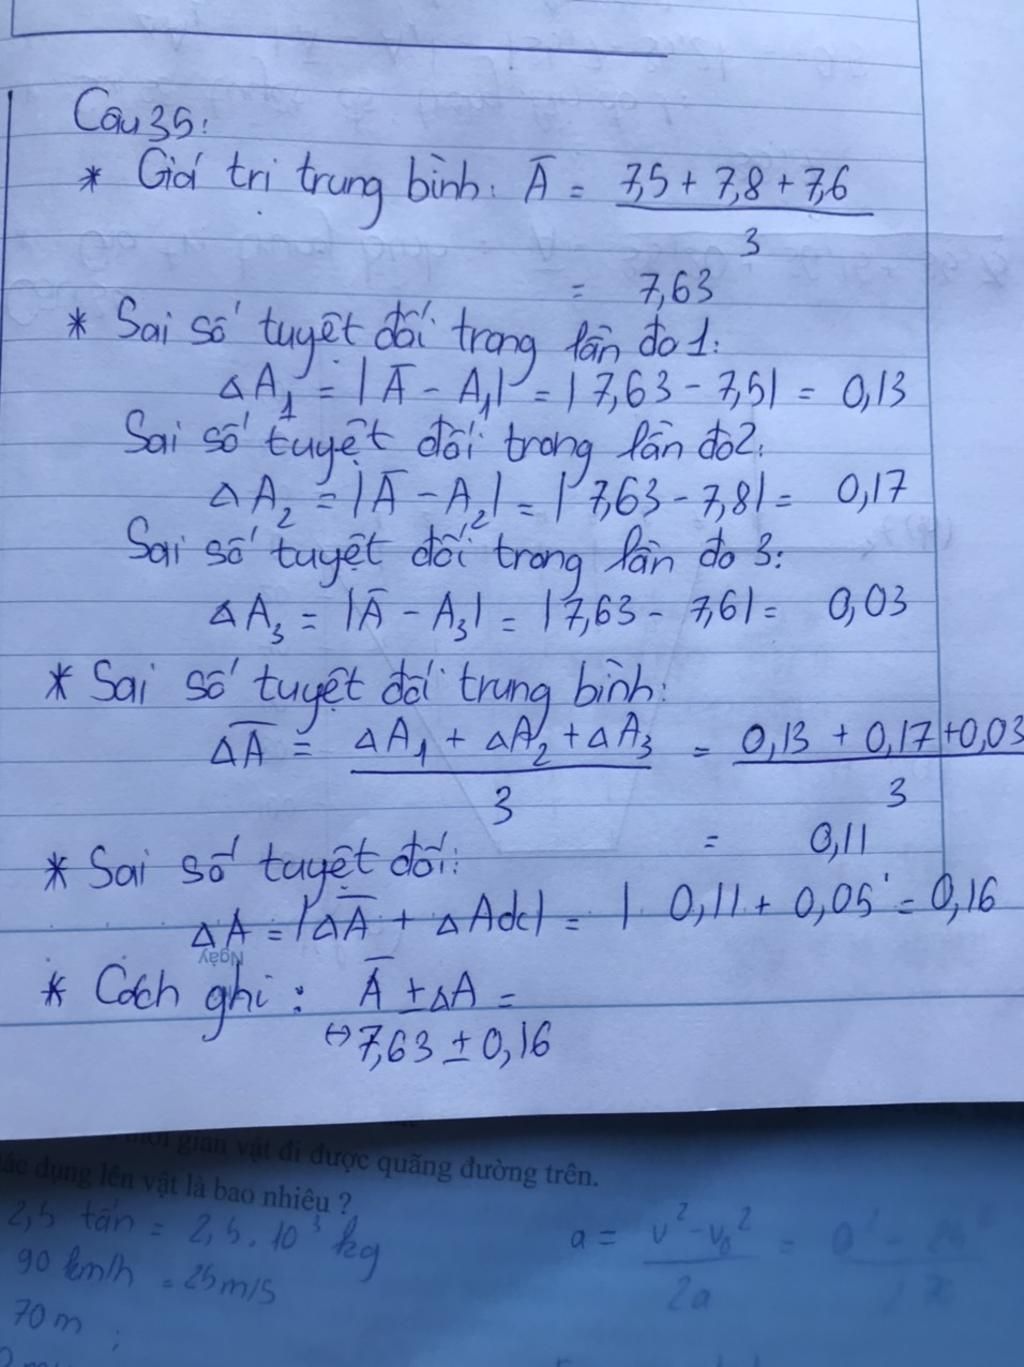 Câu 35:
* Giá trị trung bình: Ā = 7,5 + 7,8 + 7,6
3
= 7,63
* Sai số tuyệt đối trong lần đo 1:
ΔA₁ = |Ā - A₁| = | 7,63 - 7,5| = 0,13
Sai số tuyệt đối trong lần đo 2:
ΔA₂ = |Ā - A₂| = | 7,63 - 7,8| = 0,17
Sai số tuyệt đối trong lần đo 3:
ΔA₃ = |Ā - A₃| = | 7,63 - 7,6| = 0,03
* Sai số tuyệt đối trung bình:
Δ̅A̅ = ΔA₁ + ΔA₂ + ΔA₃ = 0,13 + 0,17 + 0,03
3 3
= 0,11
* Sai số tuyệt đối:
ΔA = |Δ̅A̅ + ΔAdc| = | 0,11 + 0,05 = 0,16
Ngày
* Cách ghi: Ā ± ΔA =
⇔ 7,63 ± 0,16
gian vật đi được quãng đường trên.
dụng lên vật là bao nhiêu ?
2,5 tấn = 2,5 . 10³ kg
90 km/h = 25 m/s
70 m
a = v² - v₀² =
2a